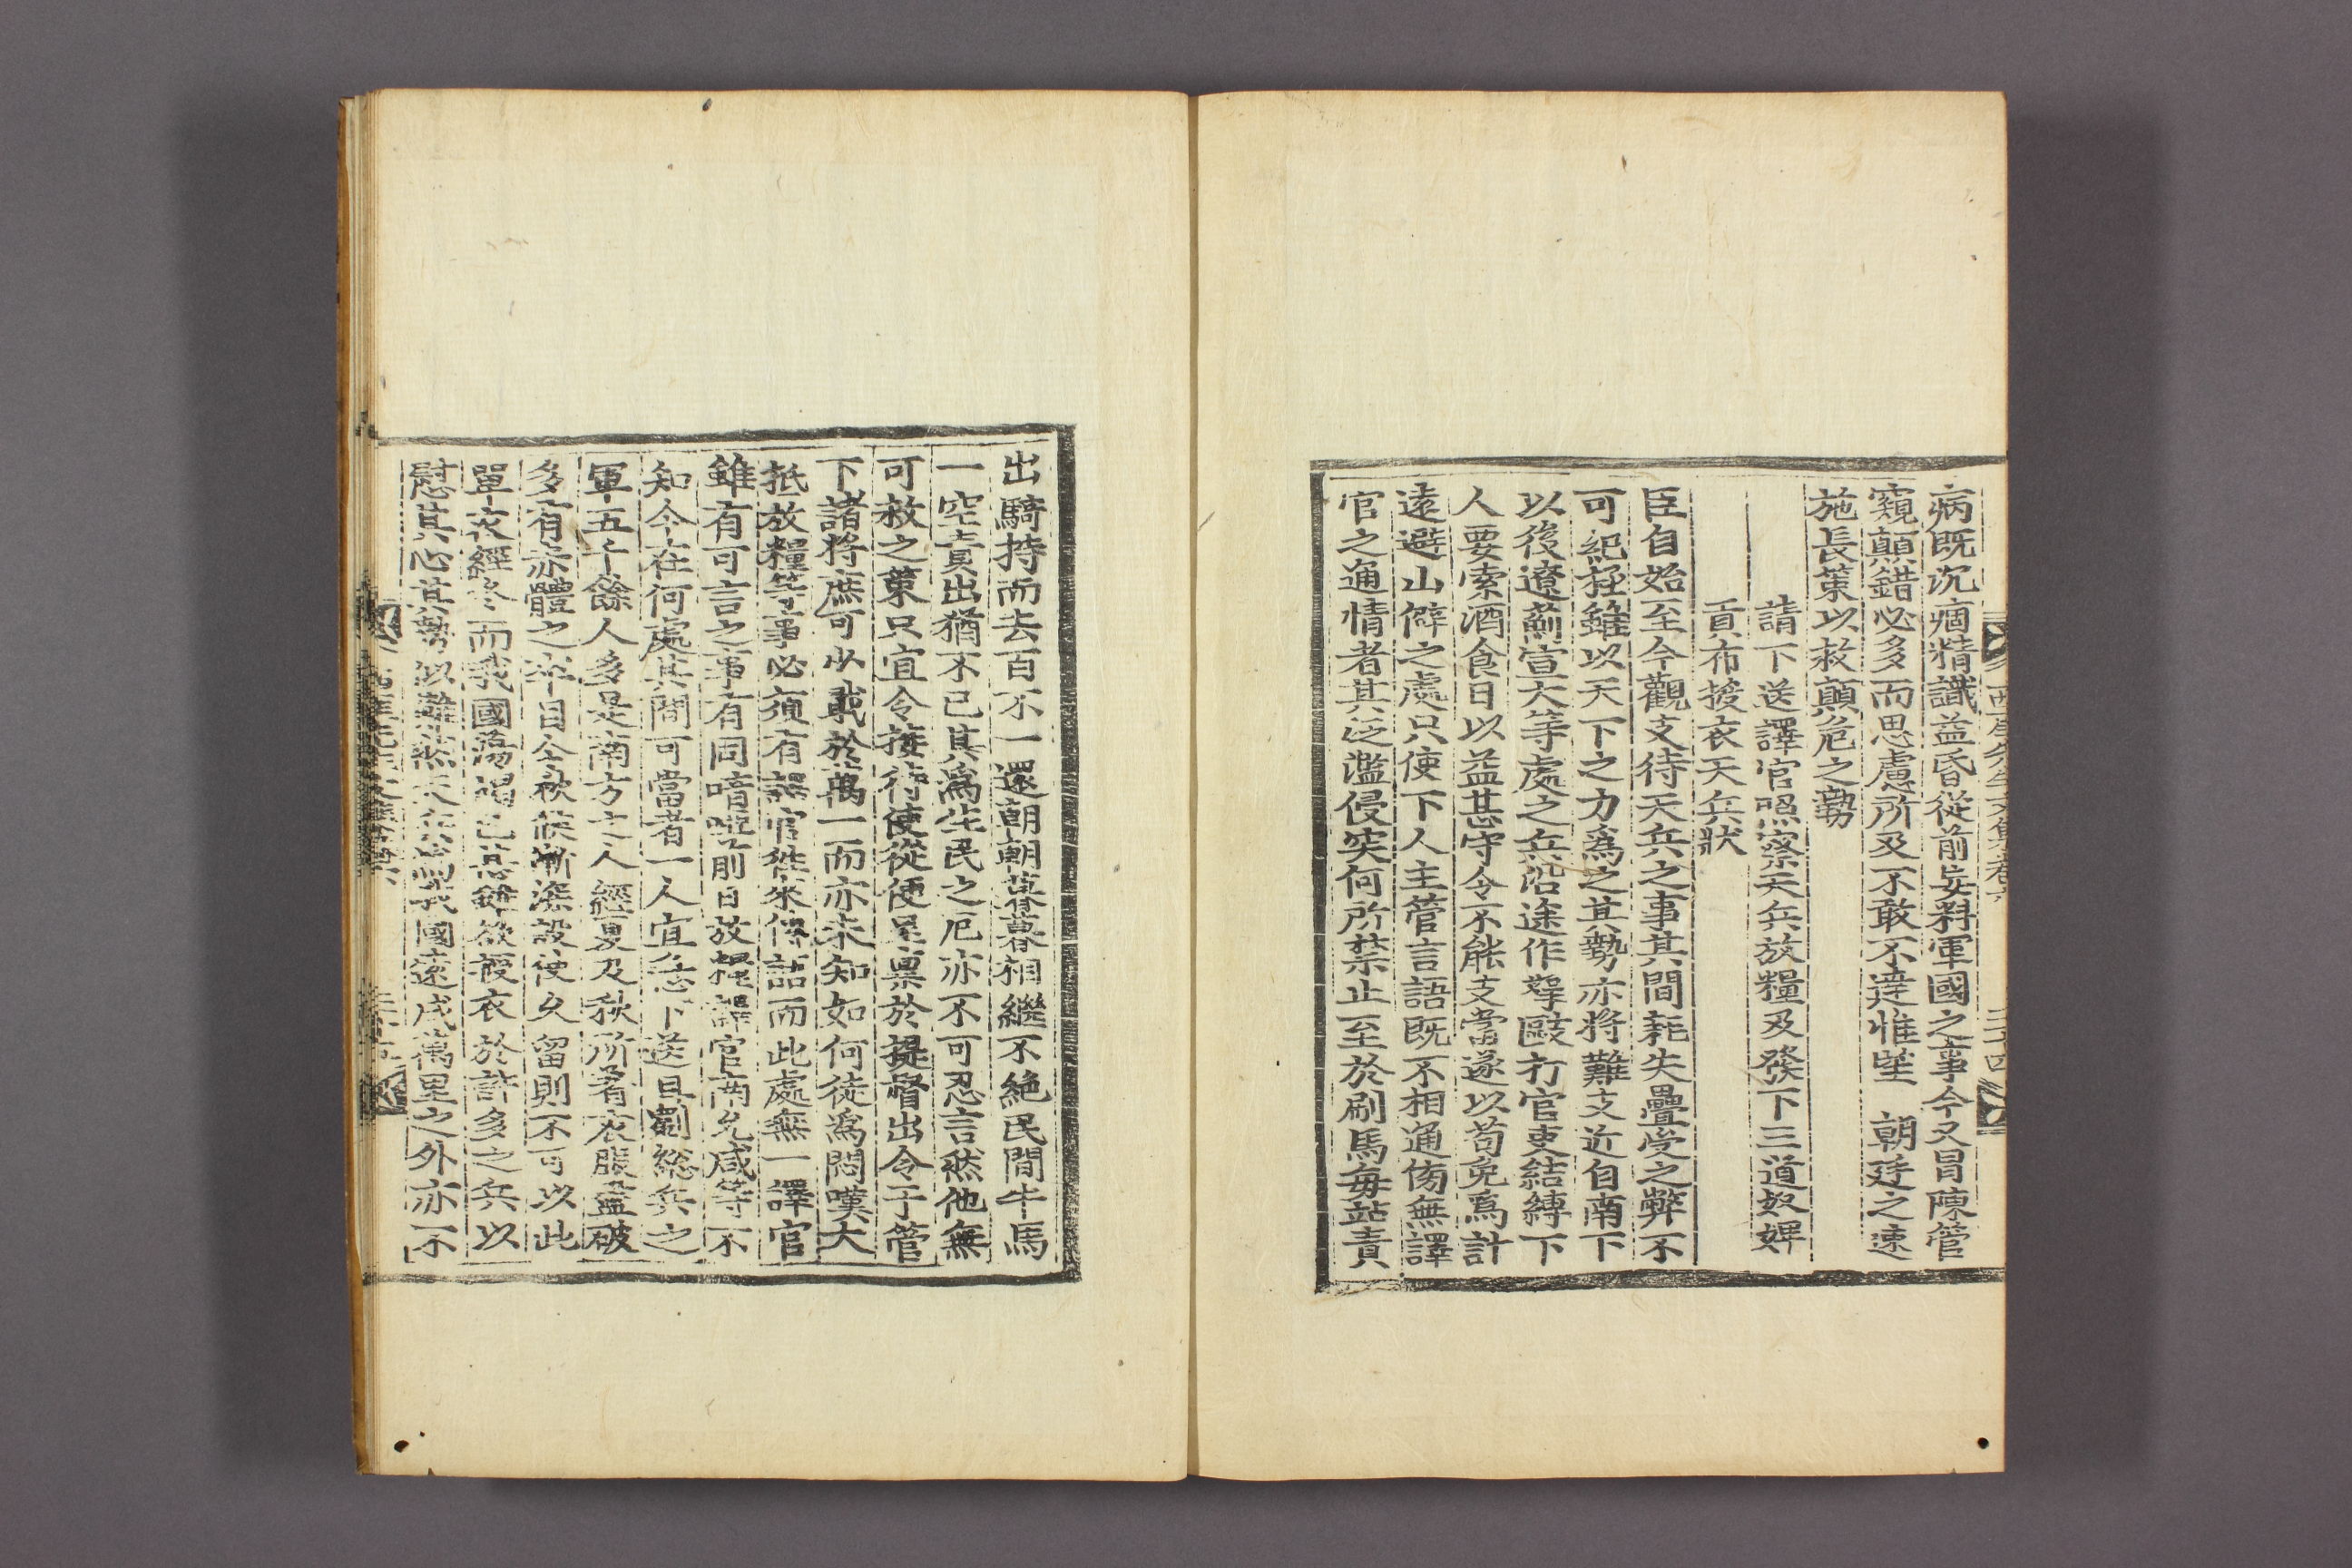 病既沉痼精識益昏從前妄料軍國之事今又冒陳管
窺顛錯必多而思慮所及不敢不達惟望 朝廷之速
施長策以救顛危之勢
請下送譯官照察天兵放糧及發下三道奴婢
貢布援衣天兵狀
臣自始至今觀支待天兵之事其間耗失疊受之弊不
可紀極雖以天下之力爲之其勢亦將難支近自南下
以後遼薊宣大等處之兵沿途作拏毆打官吏結縛下
人要索酒食日以益甚守令不能支當遂以苟免爲計
遠避山僻之處只使下人主管言語既不相通傍無譯
官之通情者其泛濫侵突何所禁止至於刷馬每站責
出騎持而去百不一還朝朝暮暮相繼不絶民間牛馬
一空責出猶不已其爲生民之厄亦不可忍言然他無
可救之策只宜令接待使從便呈禀於提督出令于管
下諸將庶可少戢於萬一而亦未知如何徒爲悶嘆大
抵放糧等事必須有譯官徃來傳話而此處無一譯官
雖有可言之事有同喑啞前日放糧譯官南允咸等不
知今在何處其間可當者一人宜急下送且劉総兵之
軍五千餘人多是南方之人經夏及秋所着衣服盡破
多有赤體之卒目今秋候漸深設使久留則不可以此
單衣經冬而我國蕩竭已甚雖欲援衣於許多之兵以
慰其心其勢似難然天兵爲我國遠戍萬里之外亦不